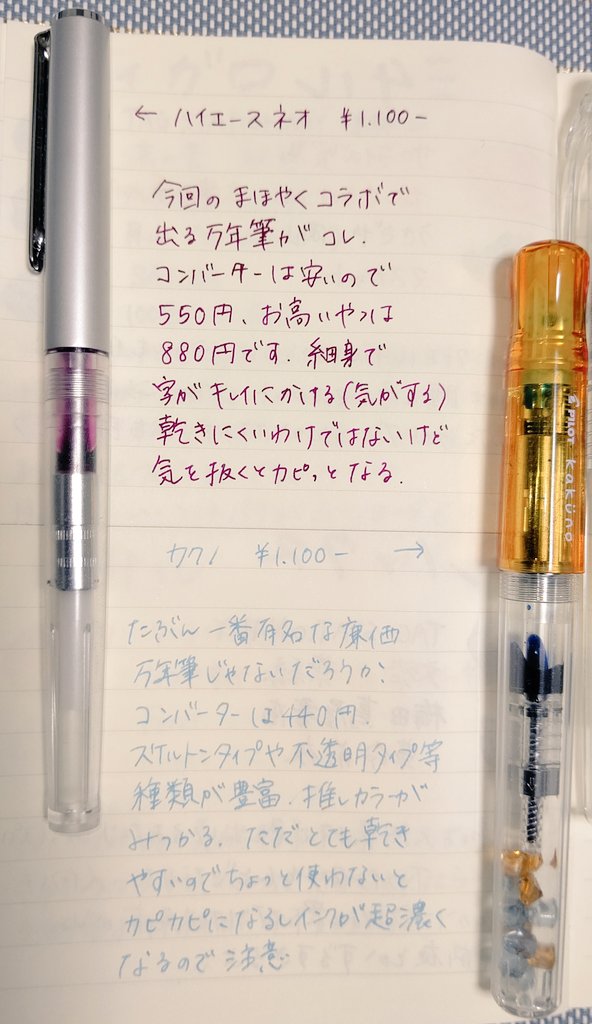 ← ハイエースネオ ¥1.100-
今回の まほやく コラボで
出る 万年筆が コレ.
コンバーターは 安いので
550円、お高いやつは
880円です. 細身で
字が キレイに かける(気がする)
乾きにくいわけではないけど
気を抜くとカピッとなる.
カクノ ¥1.100- →
たぶん 一番有名な廉価
万年筆じゃないだろうか.
コンバーターは 440円.
スケルトンタイプや 不透明タイプ等
種類が 豊富. 推しカラーが
みつかる. ただ とても 乾き
やすいので ちょっと使わないと
カピカピになるしインクが超濃く
なるので 注意
PILOT kaküno